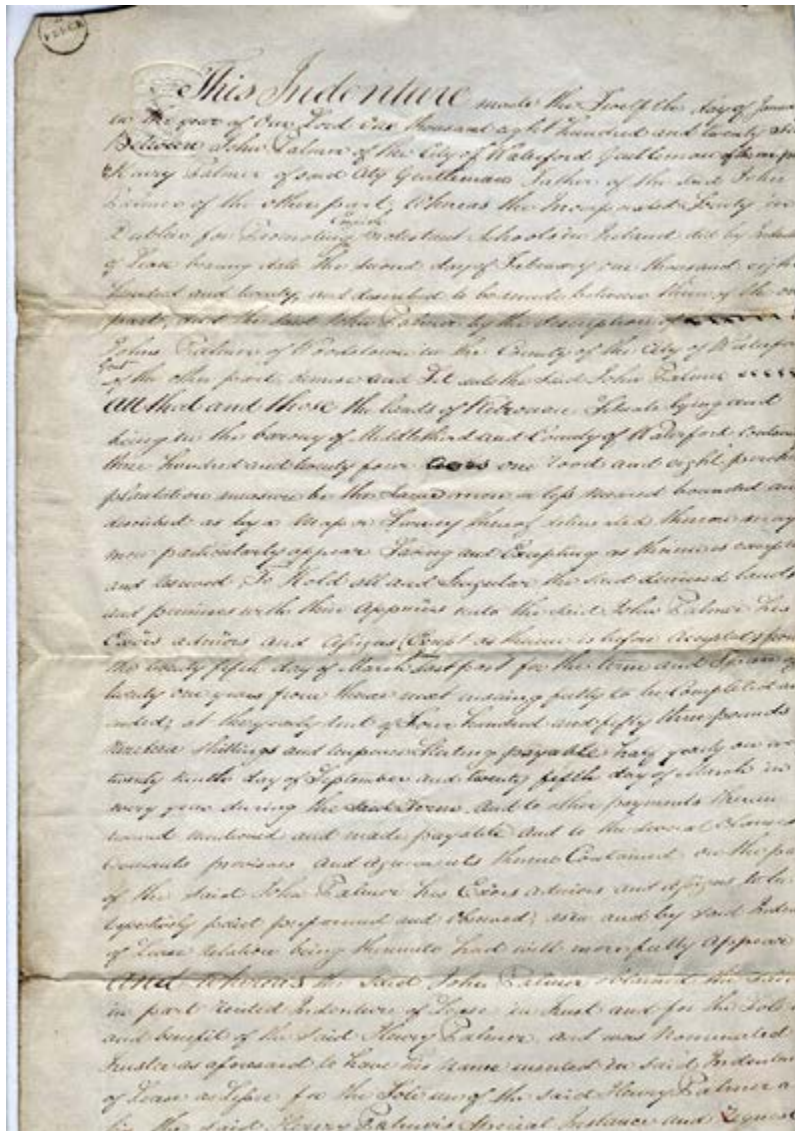 This Indenture made the Twelfth day of
in the year of Our Lord One thousand eight hundred and twenty
Between John Palmer of the City of Waterford Gentleman of the one
Henry Palmer of said City Gentleman Father of the said John
Palmer of the other part, Whereas the Incorporated Society in
Dublin for Promoting English Protestant Schools in Ireland did by
of Lease bearing date the second day of February one thousand
hundred and twenty, and described to be made between them of the
part, and the said John Palmer by the description of
John Palmer of Woodstown in the County of the City of
Gent of the other part, demise and Set unto the said John Palmer
All that and those the lands of Situate lying and
being in the barony of Middlethird and County of Waterford
three hundred and twenty four acres one rood and eight
plantation measure be the same more or less meared bounded
described as by a Map or Survey thereof delineated thereon may
more particularly appear Saving and Excepting as therein is
and To Hold all and Singular the said demised lands
and premises with their Apprûes unto the said John Palmer his
Exōrs admōrs and assigns (Except as therein is before excepted) from
the twenty fifth day of March last past for the term and Space of
twenty one years from thence next ensuing fully to be Completed
ended; at the yearly rent of Four hundred and fifty three pounds
Nineteen shillings and Sterling payable half yearly on
twenty ninth day of September and twenty fifth day of March in
every year during the said Term and to other payments therein
mentioned and made payable and to the several
Covenants provisoes and agreements therein Contained on the
of the said John Palmer his Exōrs admōrs and assigns to be
respectively paid performed and observed; as in and by said
of Lease relation being thereunto had will more fully Appear
And Whereas the said John Palmer obtained the said
in part recited Indenture of Lease in Trust and for the Sole
and benefit of the said Henry Palmer, and was Nominated
Trustee as aforesaid to have his Name inserted in said
of Lease as Lessee for the Sole use of the said Henry Palmer
the said Henry Palmer's Special Instance and Request